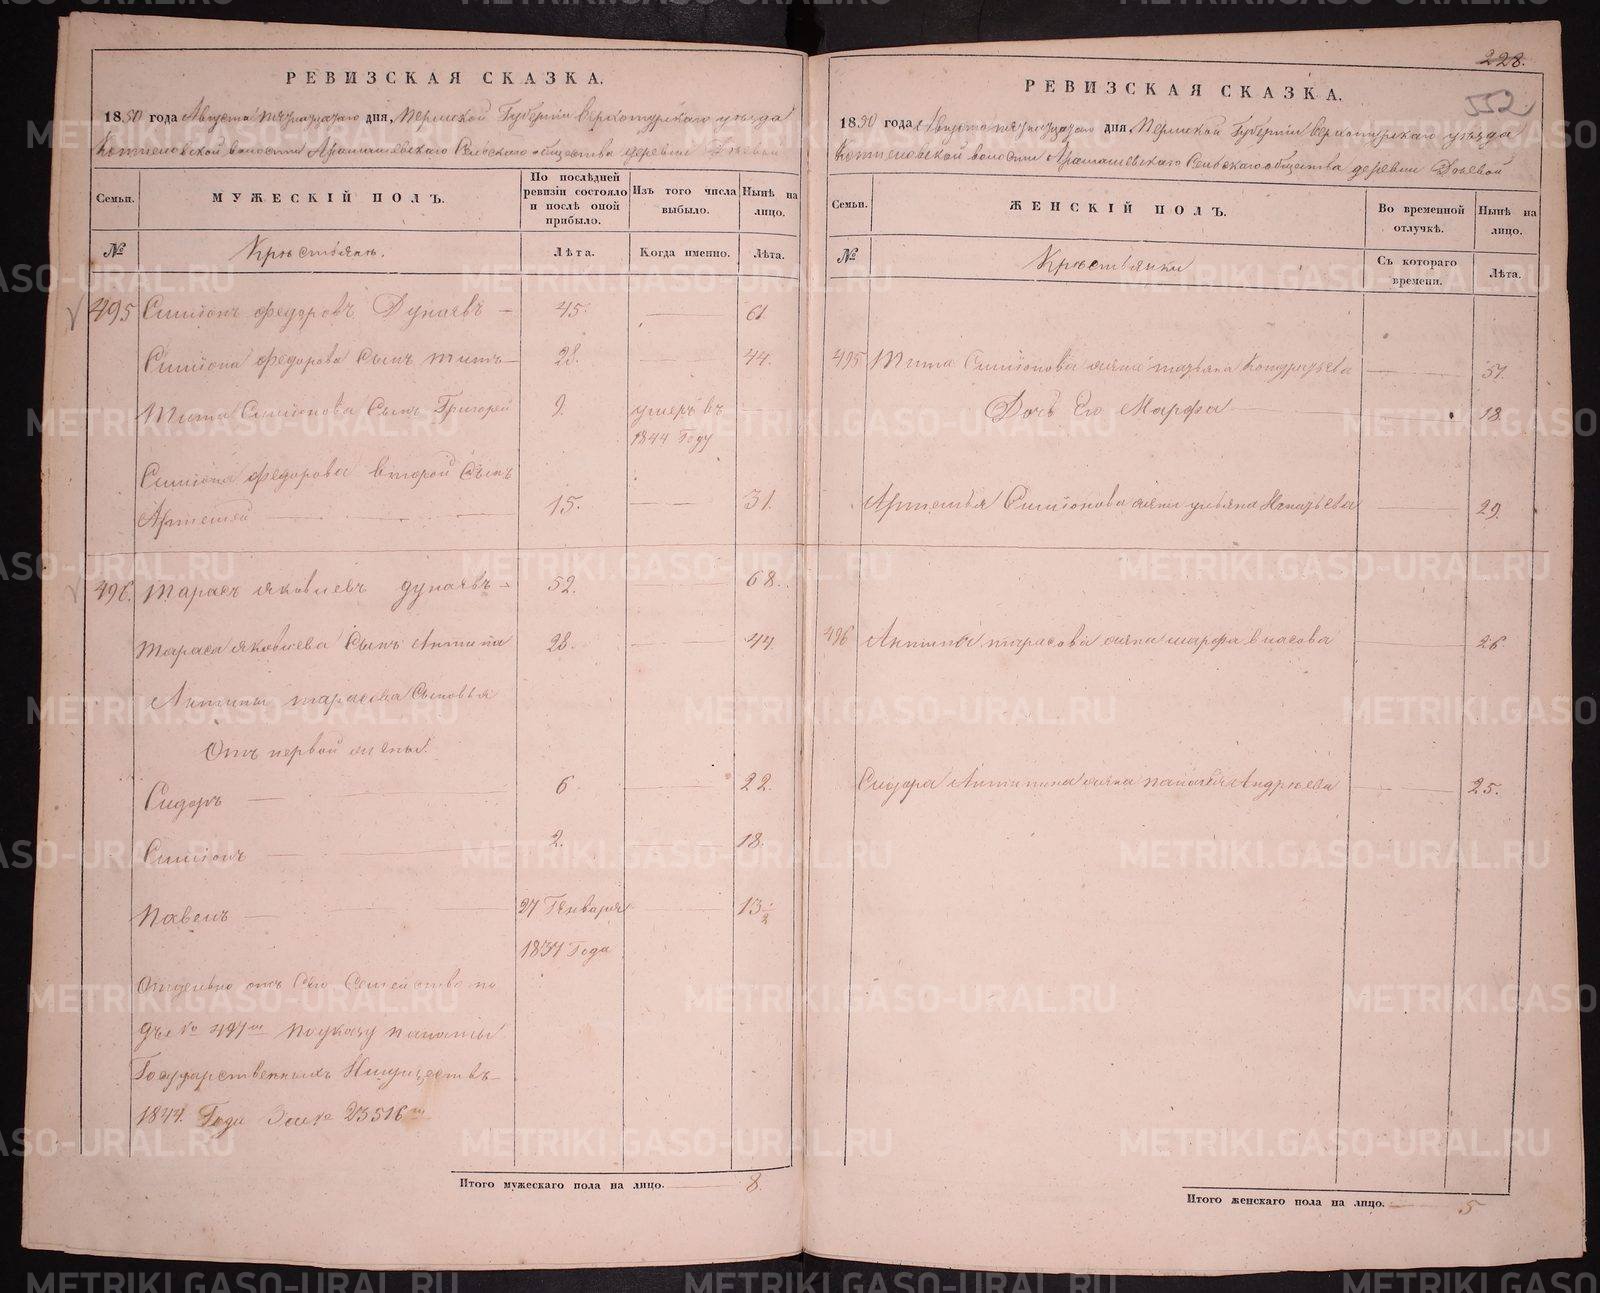 РЕВИЗСКАЯ СКАЗКА.
1850 года Августа дня, Пермской Губернии Верхотурскаго уезда
волости Сельскаго общества деревни
Семьи.
МУЖЕСКІЙ ПОЛЪ.
По послѣдней ревизіи состояло и послѣ оной прибыло.
Изъ того числа выбыло.
Нынѣ на лицо.
№
Крестьянъ.
Лѣта.
Когда именно.
Лѣта.
495 Симіонъ Федоровъ Дунаевъ — 45. — 61
Симіона Федорова Сынъ Титъ — 28. — 44.
Тита Симіонова Сынъ Григорей 9. умеръ въ
1844 Году
Симіона Федорова второй Сынъ
Артемей — 15. — 31.
496. Тарасъ Яковлевъ Дунаевъ — 52. — 68.
Тараса Яковлева Сынъ Антипа 28. — 44.
Антипы Тарасова Сыновья
Отъ первой жены.
Сидоръ — 6. — 22.
Симіонъ — 2. — 18.
Павелъ — 27 Генваря — 13 1/2
1837 Года
Отдельно отъ Сего Семейства
№ 497 По указу палаты
Государственныхъ Имуществъ
1844. Года За № 23516
Итого мужескаго пола на лицо. 8.
228.
552
РЕВИЗСКАЯ СКАЗКА.
1850 года Августа дня, Пермской Губерніи Верхотурскаго уезда
волости Сельскаго общества деревни
Семьи.
ЖЕНСКІЙ ПОЛЪ.
Во временной отлучкѣ.
Нынѣ на лицо.
№
Крестьянки
Съ котораго времени.
Лѣта.
495 Тита Симіонова жена Татьяна Кондратьева — 51.
Дочь Его Марфа — 18
Артемья Симіонова жена Ульяна Игнатьева — 29.
496 Антипы Тарасова жена Марфа Власова — 26.
Сидора Антипина жена Палагея Андреева — 25.
Итого женскаго пола на лицо. 5
METRIKI.GASO-URAL.RU